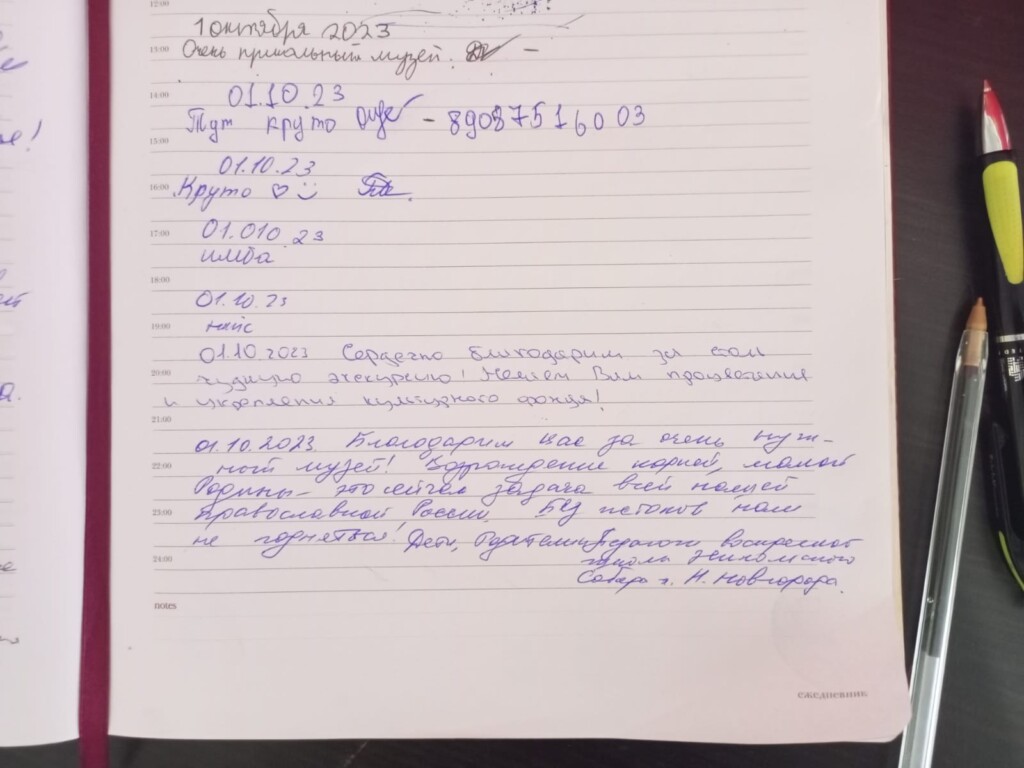 12:00
1 октября 2023
13:00
Очень прикольный музей. –
14:00
01.10.23
Тут круто – 89087516003
15:00
01.10.23
16:00
Круто ♡ :)
17:00
01.010.23
имба
18:00
01.10.23
19:00
найс
01.10.2023 Сердечно благодарим за столь
20:00
чудную экскурсию! Желаем Вам процветания
и укрепления культурного фонда!
21:00
01.10.2023. Благодарим Вас за очень нуж-
22:00
ный музей! Возрождение корней, малой
Родины – это сейчас задача всей нашей
23:00
православной России. Без истоков нам
не подняться! Дети, Родители, Педагоги воскресной
24:00
школы
Собора г. Н. Новгорода.
notes
ежедневник